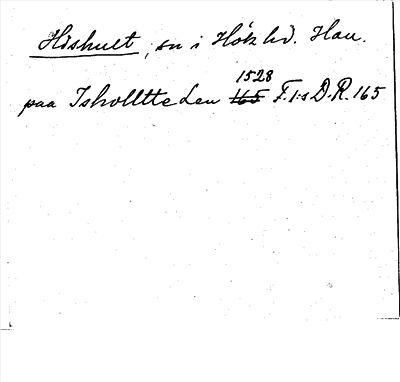 Hishult, sn i Höks hd. Hau.
1528
paa Isholltte Len 165 F.I:s D.R. 165